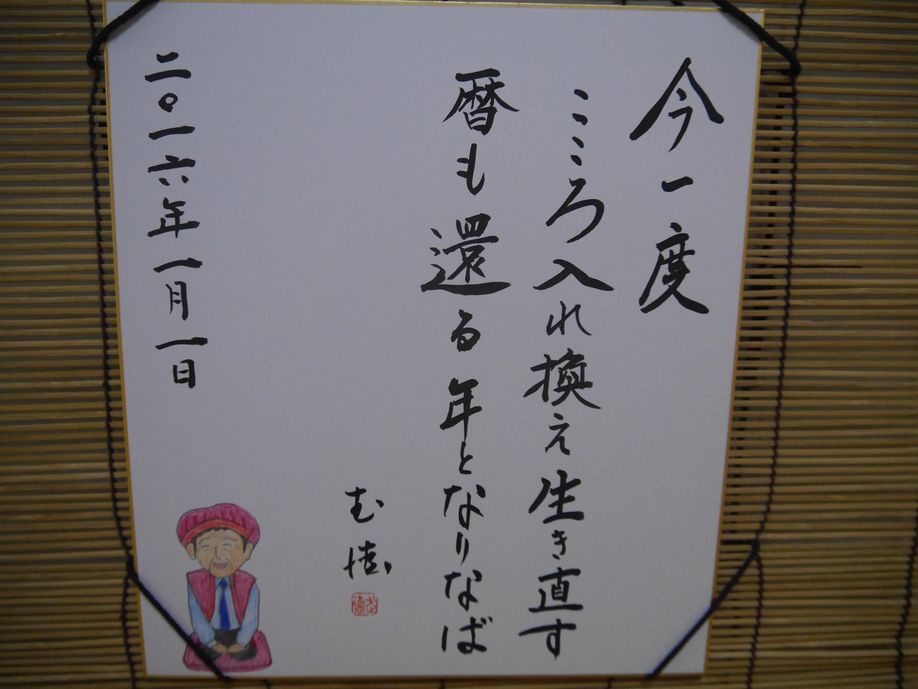 今一度
こころ入れ換え生き直す
暦も還る年となりなば
二〇一六年一月一日